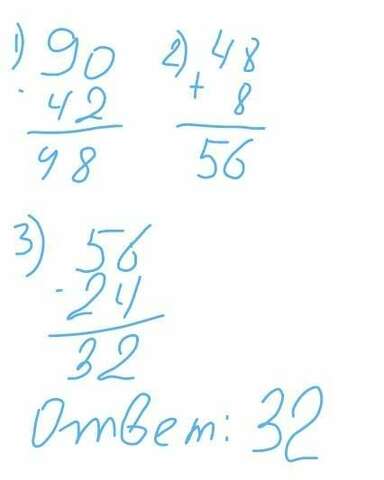 1) 90 2) 48
- 42 + 8
48 56
3) 56
- 24
32
Ответ: 32